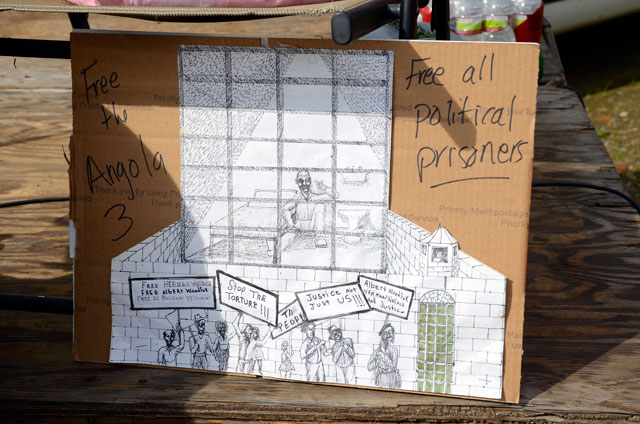 Free
the
Angola
3
Free all
political
prisoners
Priority Mail
Thank you for using
Priority Mail postage
FREE HERMAN WALLACE
FREE ALBERT WOODFOX
STOP THE
TORTURE!!!
THE
Justice not
Just US!!!
Albert Woodfox
Herman Wallace
and Justice